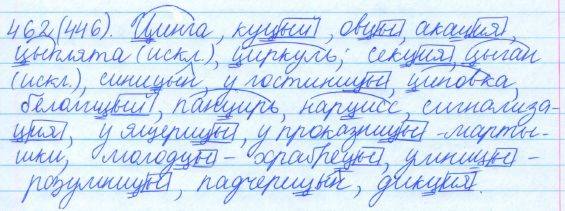 462(446). Цинга, куцый, овцы, акация,
цыплята (искл.), циркуль, секция, цыган
(искл.), синицын, у гостиницы, циновка,
белолицый, панцирь, нарцисс, сигнализа-
ция, у ящерицы, у проказницы-марты-
шки, молодцы-храбрецы, умницы-
розумницы, падчерицын, дикция.